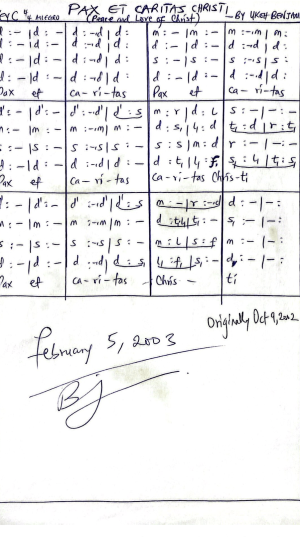 PAX ET CARITAS CHRISTI
KEY C 4/4 (Peace and Love of Christ) — BY UKEH BENJAMI
d : – | d : – d : –d | d : m : – | m : – m : –m | m :
d : – | d : – d : –d | d : d : – | d : – d : –d | d :
d : – | d : – d : –d | d : s : – | s : – s : –s | s :
d : – | d : – d : –d | d : d : – | d : – d : –d | d :
Pax et Ca – ri – tas Pax et Ca – ri – tas
d' : – | d' : – d' : –d' | d' : s m : r | d : l s : – | – :
m : – | m : – m : –m | m : – d : s, | l, : d t, : d | r : t,
s : – | s : – s : –s | s : – s : s | m : d r : – | – : –
d : – | d : – d : –d | d : – d : t, | l, : f, s, : l, | t, : s,
Pax et Ca – ri – tas Ca – ri – tas Chris – ti
d' : – | d' : – d' : –d' | d' : s m : – | r : –d d : – | – :
m : – | m : – m : –m | m : – d : t,l, | t, : – s, : – | – :
s : – | s : – s : –s | s : – m : l | s : f m : – | – :
d : – | d : – d : –d | d : s, l, : f, | s, : – d, : – | – :
Pax et Ca – ri – tas Chris – ti
Originally Oct 9, 2002
February 5, 2003
BJ